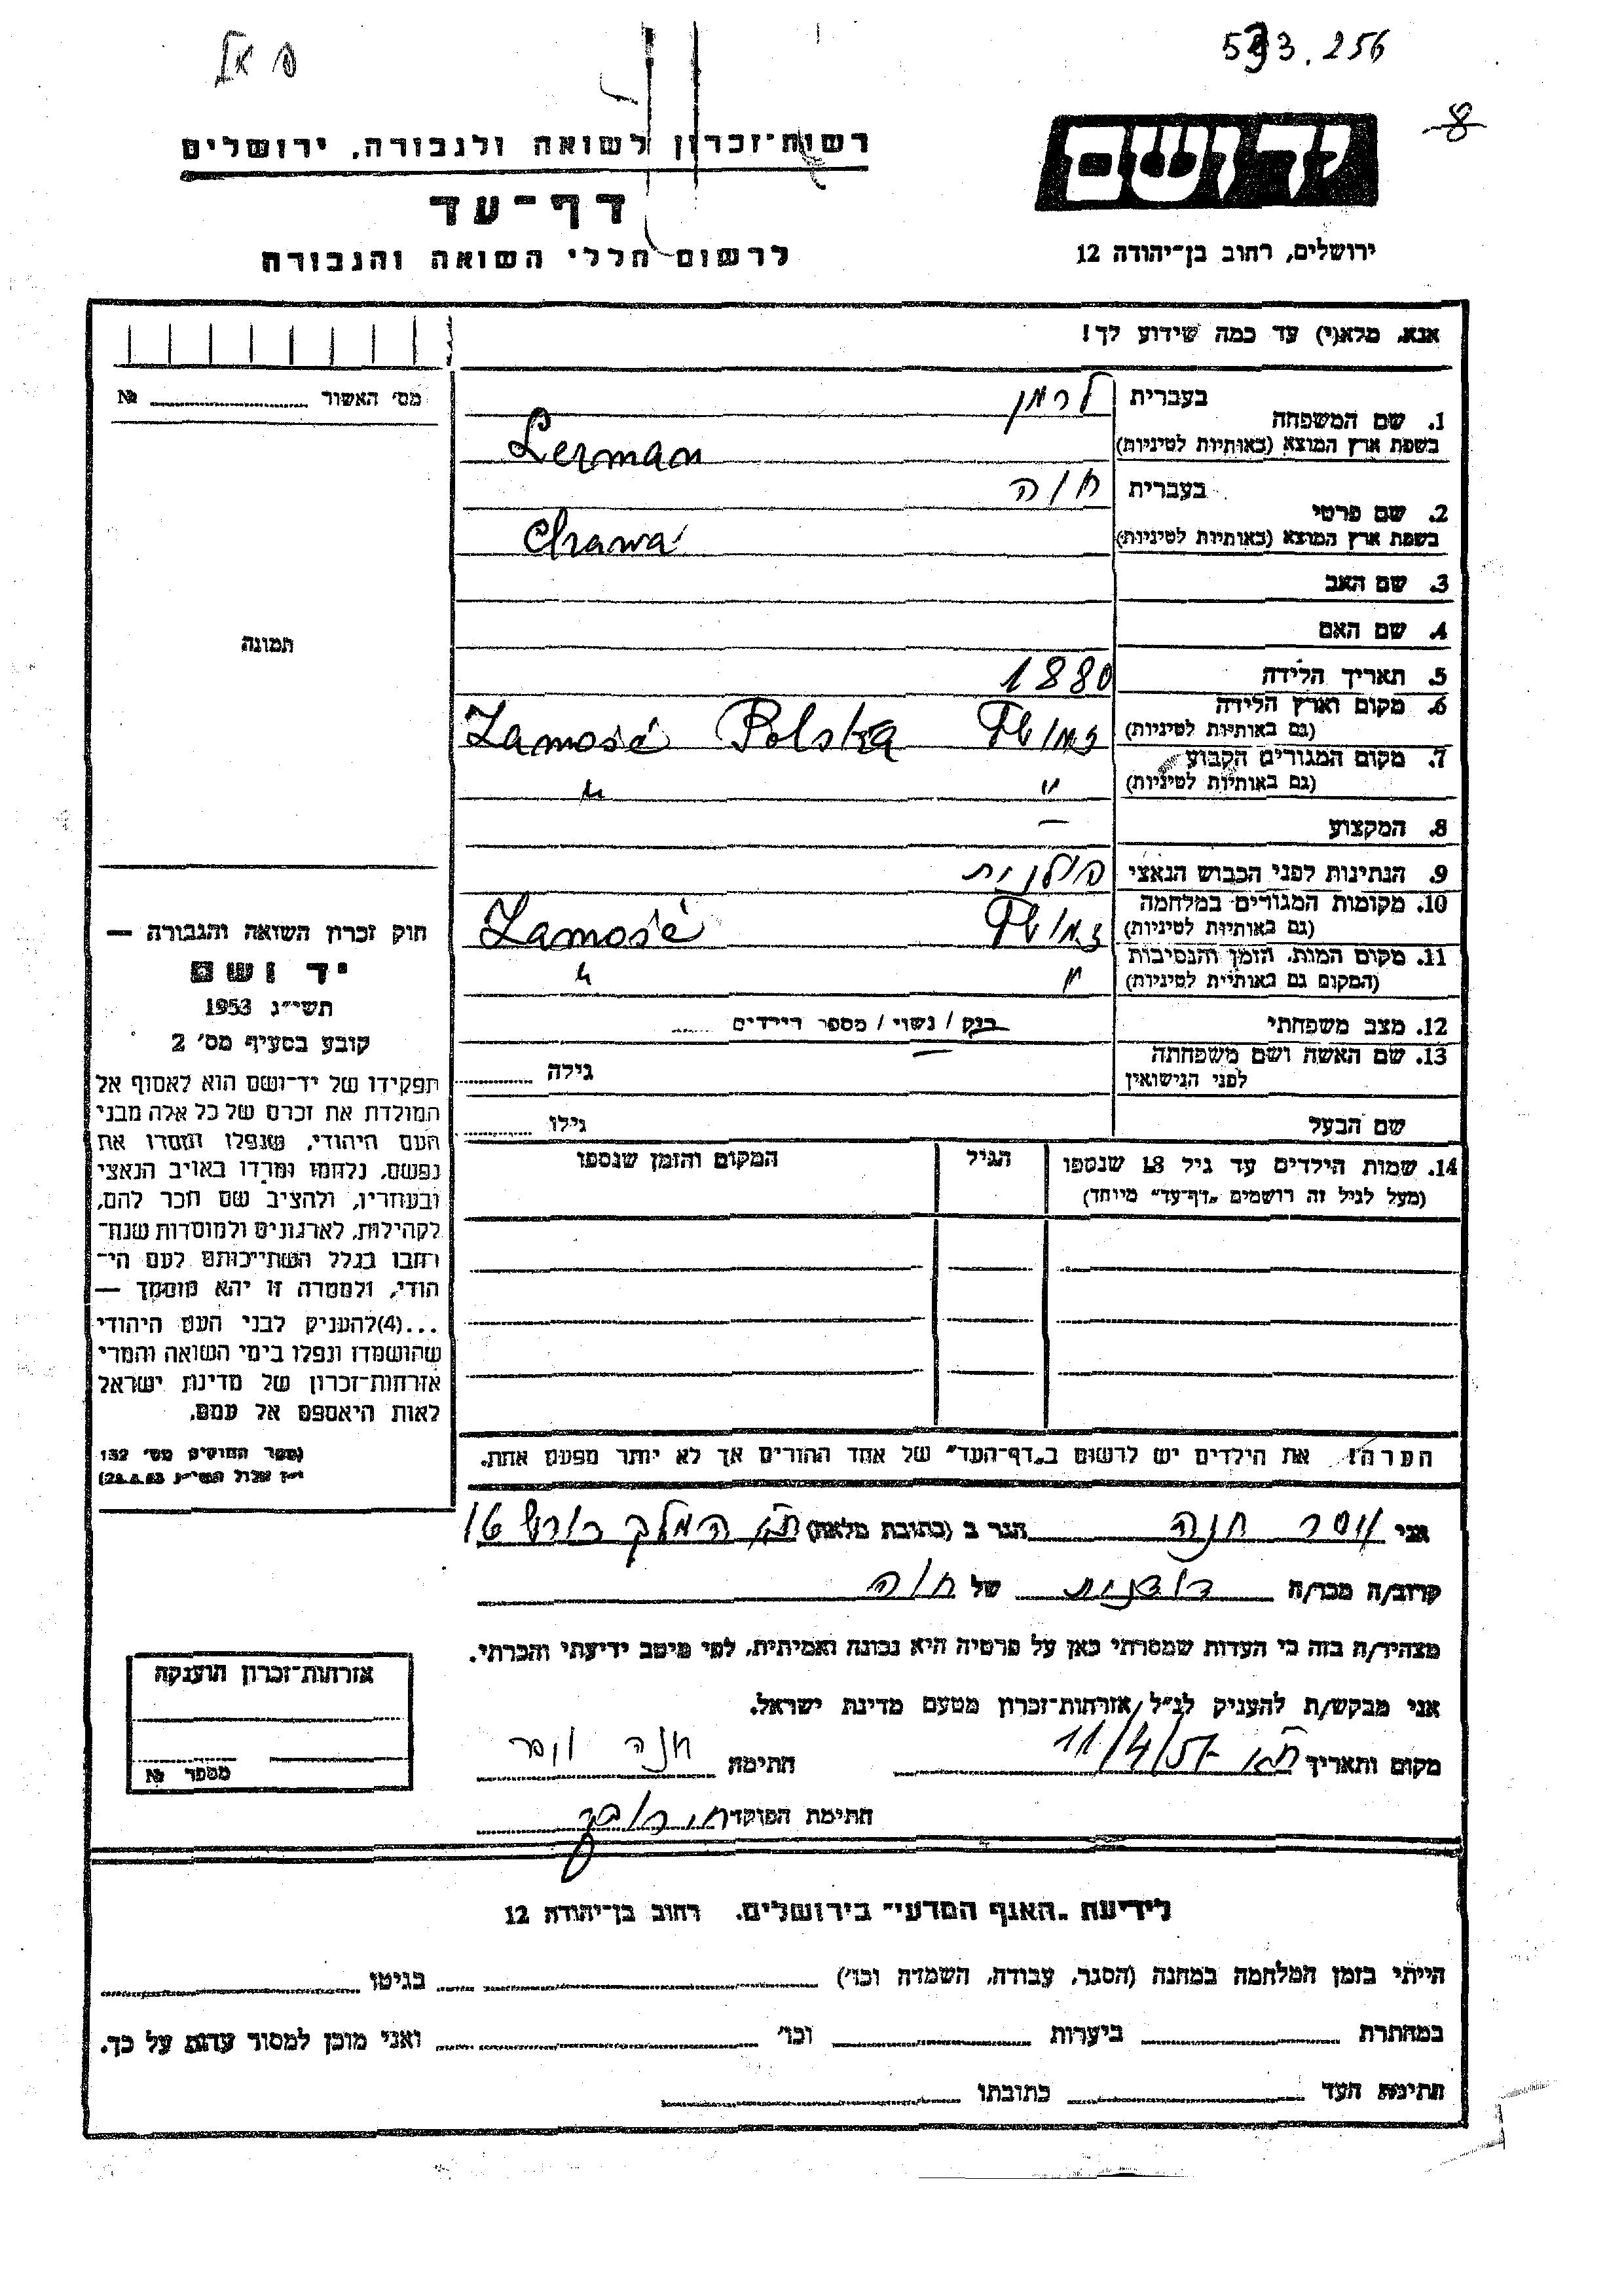 593.256
8
יד ושם
ירושלים, רחוב בן־יהודה 12
רשות־זכרון לשואה ולגבורה, ירושלים
דף־עד
לרשום חללי השואה והגבורה
אנא, מלא(י) עד כמה שידוע לך!
מס' האשור № 
1. שם המשפחה בעברית לרמן
בשפת ארץ המוצא (באותיות לטיניות) Lerman
2. שם פרטי בעברית חוה
בשפת ארץ המוצא (באותיות לטיניות) Chawa
3. שם האב
4. שם האם
5. תאריך הלידה 1880
6. מקום וארץ הלידה (גם באותיות לטיניות) זמושץ Zamość Polska
7. מקום המגורים הקבוע (גם באותיות לטיניות) " "
8. המקצוע —
9. הנתינות לפני הכבוש הנאצי פולנית
10. מקומות המגורים במלחמה (גם באותיות לטיניות) זמושץ Zamość
11. מקום המות, הזמן והנסיבות (המקום גם באותיות לטיניות) " "
12. מצב משפחתי רווק / נשוי / מספר הילדים
13. שם האשה ושם משפחתה לפני הנישואין גילה
שם הבעל גילו
14. שמות הילדים עד גיל 18 שנספו הגיל המקום והזמן שנספו
(מעל לגיל זה רושמים „דף־עד" מיוחד)
הערה: את הילדים יש לרשום ב„דף־העד" של אחד ההורים אך לא יותר מפעם אחת.
תמונה
חוק זכרון השואה והגבורה —
יד ושם
תשי״ג 1953
קובע בסעיף מס' 2
תפקידו של יד־ושם הוא לאסוף אל
המולדת את זכרם של כל אלה מבני
העם היהודי, שנפלו ומסרו את
נפשם, נלחמו ומרדו באויב הנאצי
ובעוזריו, ולהציב שם וזכר להם,
לקהילות, לארגונים ולמוסדות שנח־
רבו בגלל השתייכותם לעם הי־
הודי, ולמטרה זו יהא מוסמך —
...(4)להעניק לבני העם היהודי
שהושמדו ונפלו בימי השואה והמרי
אזרחות־זכרון של מדינת ישראל
לאות היאספם אל עמם.
(ספר החוקים מס' 132
י״ז אלול תשי״ג 28.8.53)
אני וסר חנה הגר ב (כתובת מלאה) ת״א המלך כורש 16
קרוב/ה מכר/ה דודנית של חוה
מצהיר/ה בזה כי העדות שמסרתי כאן על פרטיה היא נכונה ואמיתית, לפי מיטב ידיעתי והכרתי.
אני מבקש/ת להעניק לנ״ל אזרחות־זכרון מטעם מדינת ישראל.
מקום ותאריך ת״א 11/4/57 חתימה חנה וסר
חתימת הפוקד
אזרחות־זכרון הוענקה
מספר №
לידיעת „האגף המדעי" בירושלים, רחוב בן־יהודה 12
הייתי בזמן המלחמה במחנה (הסגר, עבודה, השמדה וכו') בגיטו
במחתרת ביערות וכו' ואני מוכן למסור עדות על כך.
חתימת העד כתובתו